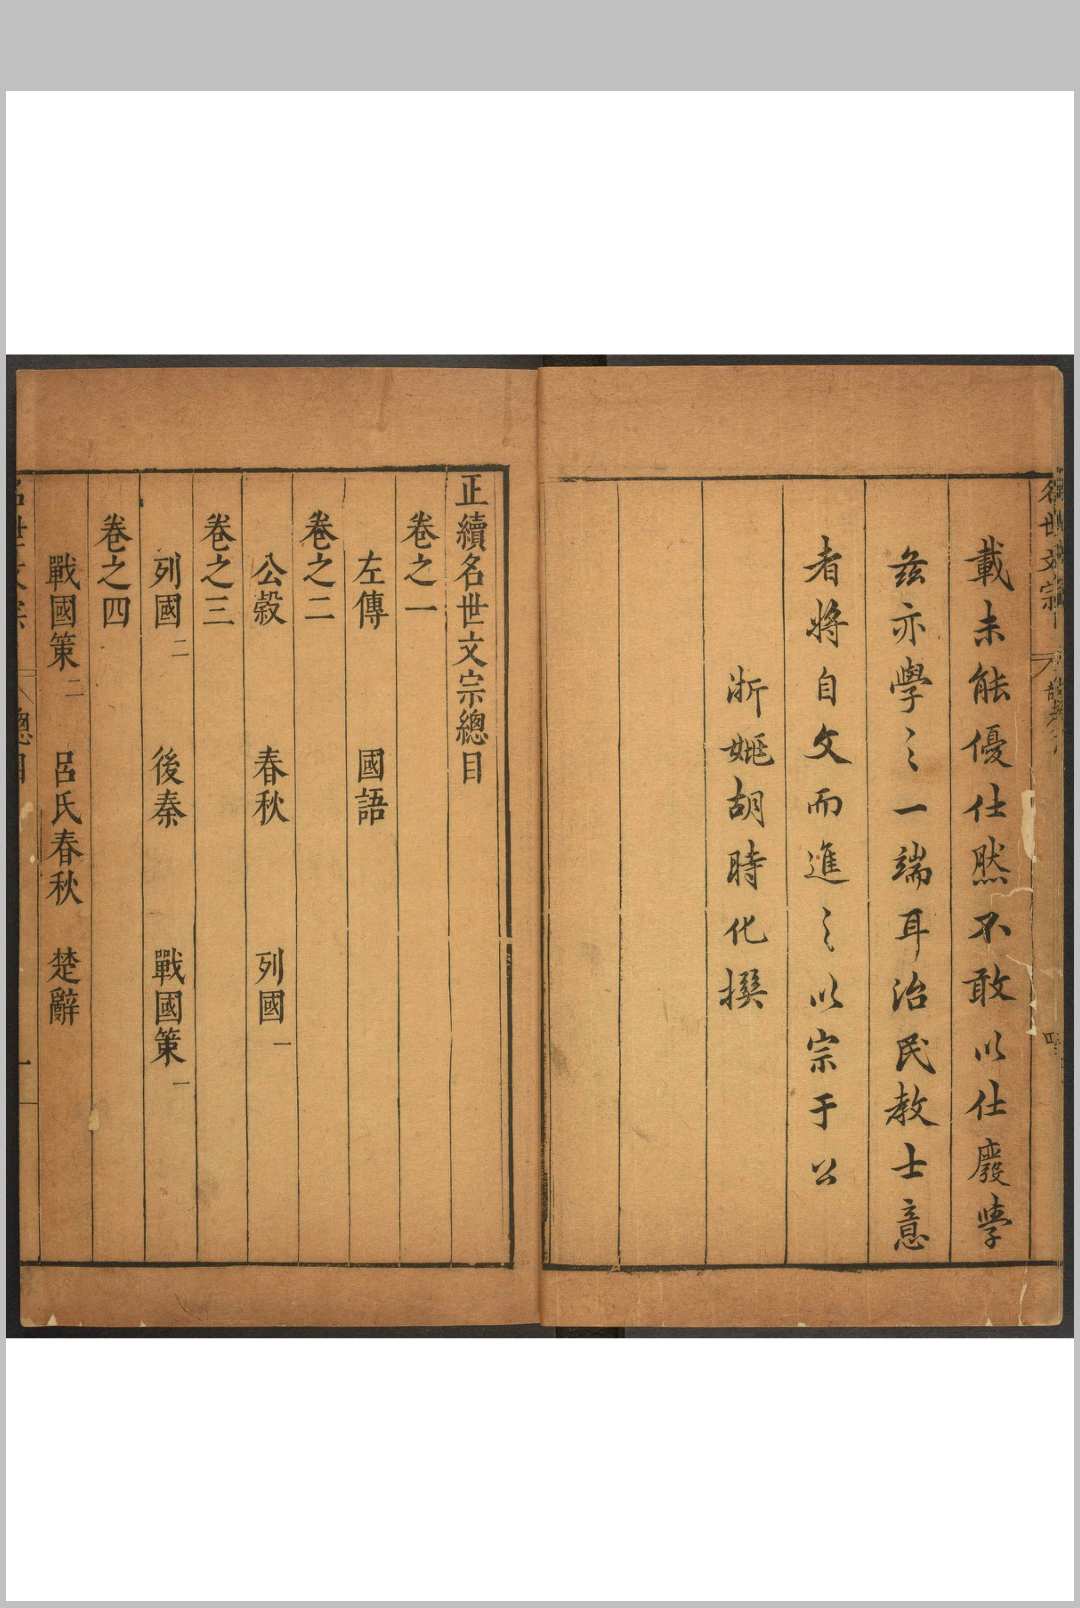 名世文宗
載未能優仕然不敢以仕廢學
茲亦學之一端耳治民教士意
者將自文而進之以宗于公
浙姚胡時化撰
正續名世文宗總目
卷之一
左傳 國語
卷之二
公榖 春秋 列國一
卷之三
列國二 後秦 戰國策一
卷之四
戰國策二 呂氏春秋 楚辭
名世文宗 總目 一